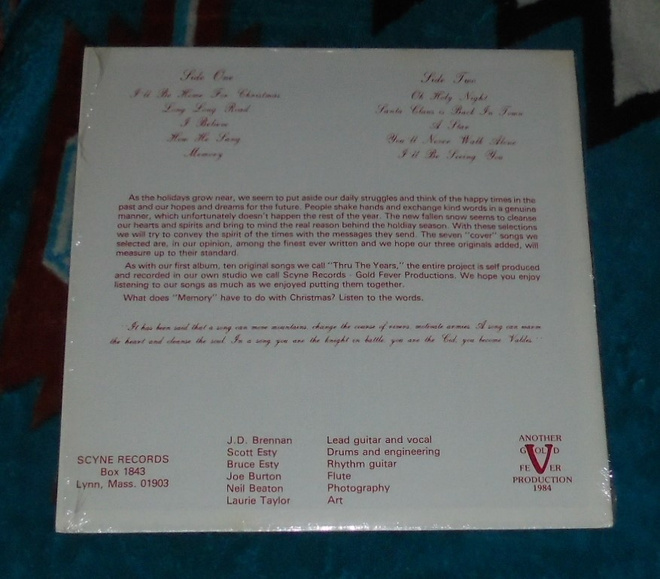 Side One
I'll Be Home For Christmas
Long Long Road
I Believe
How He Sang
Memory
Side Two
Oh Holy Night
Santa Claus is Back In Town
A Star
You'll Never Walk Alone
I'll Be Seeing You
As the holidays grow near, we seem to put aside our daily struggles and think of the happy times in the
past and our hopes and dreams for the future. People shake hands and exchange kind words in a genuine
manner, which unfortunately doesn't happen the rest of the year. The new fallen snow seems to cleanse
our hearts and spirits and bring to mind the real reason behind the holiday season. With these selections
we will try to convey the spirit of the times with the messages they send. The seven "cover" songs we
selected are, in our opinion, among the finest ever written and we hope our three originals added, will
measure up to their standard.
As with our first album, ten original songs we call "Thru The Years," the entire project is self produced
and recorded in our own studio we call Scyne Records - Gold Fever Productions. We hope you enjoy
listening to our songs as much as we enjoyed putting them together.
What does "Memory" have to do with Christmas? Listen to the words.
"It has been said that a song can move mountains, change the course of rivers, motivate armies. A song can warm
the heart and cleanse the soul. In a song you are the knight in battle, you are the Cid, you become Valdez."
SCYNE RECORDS
Box 1843
Lynn, Mass. 01903
J.D. Brennan Lead guitar and vocal
Scott Esty Drums and engineering
Bruce Esty Rhythm guitar
Joe Burton Flute
Neil Beaton Photography
Laurie Taylor Art
ANOTHER
GOLD
FEVER
PRODUCTION
1984